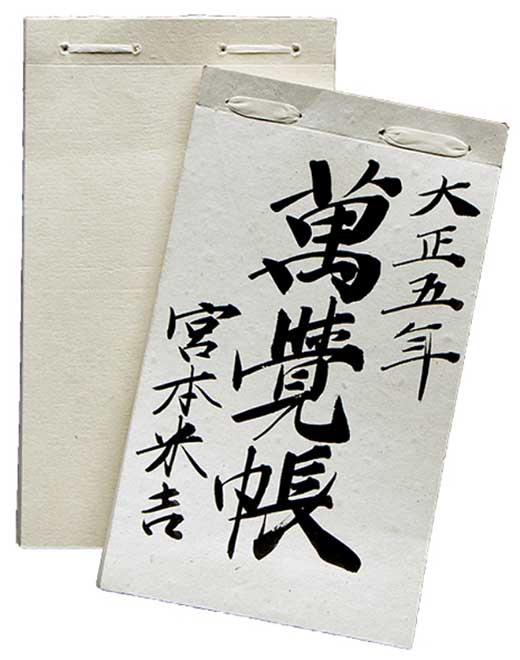 大正五年
萬覺帳
宮本米吉